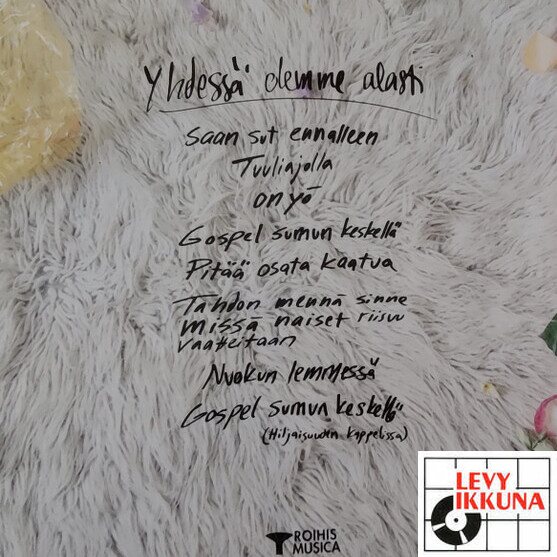 Yhdessä olemme alasti
Saan sut ennalleen
Tuuliajolla
on yö
Gospel sumun keskellä
Pitää osata kaatua
Tahdon mennä sinne
missä naiset riisuu
vaatteitaan
Nuokun lemmessä
Gospel sumun keskellä
(Hiljaisuuden kappelissa)
ROIHIS
MUSICA
LEVY
IKKUNA